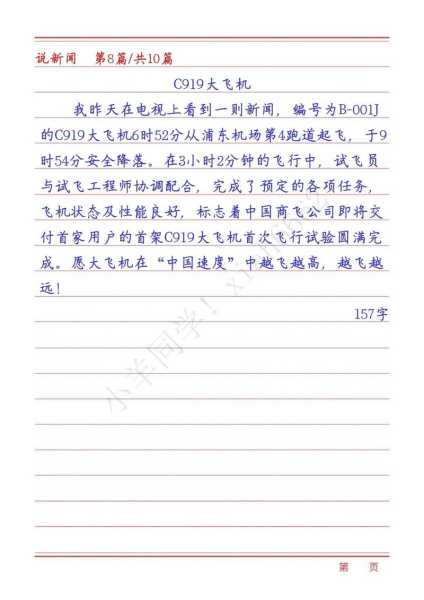 说新闻 第8篇/共10篇
C919大飞机
我昨天在电视上看到一则新闻，编号为B-001J
的C919大飞机6时52分从浦东机场第4跑道起飞，于9
时54分安全降落。在3小时2分钟的飞行中，试飞员
与试飞工程师协调配合，完成了预定的各项任务，
飞机状态及性能良好，标志着中国商飞公司即将交
付首家用户的首架C919大飞机首次飞行试验圆满完
成。愿大飞机在“中国速度”中越飞越高，越飞越
远！
157字
小羊同学！
第 页